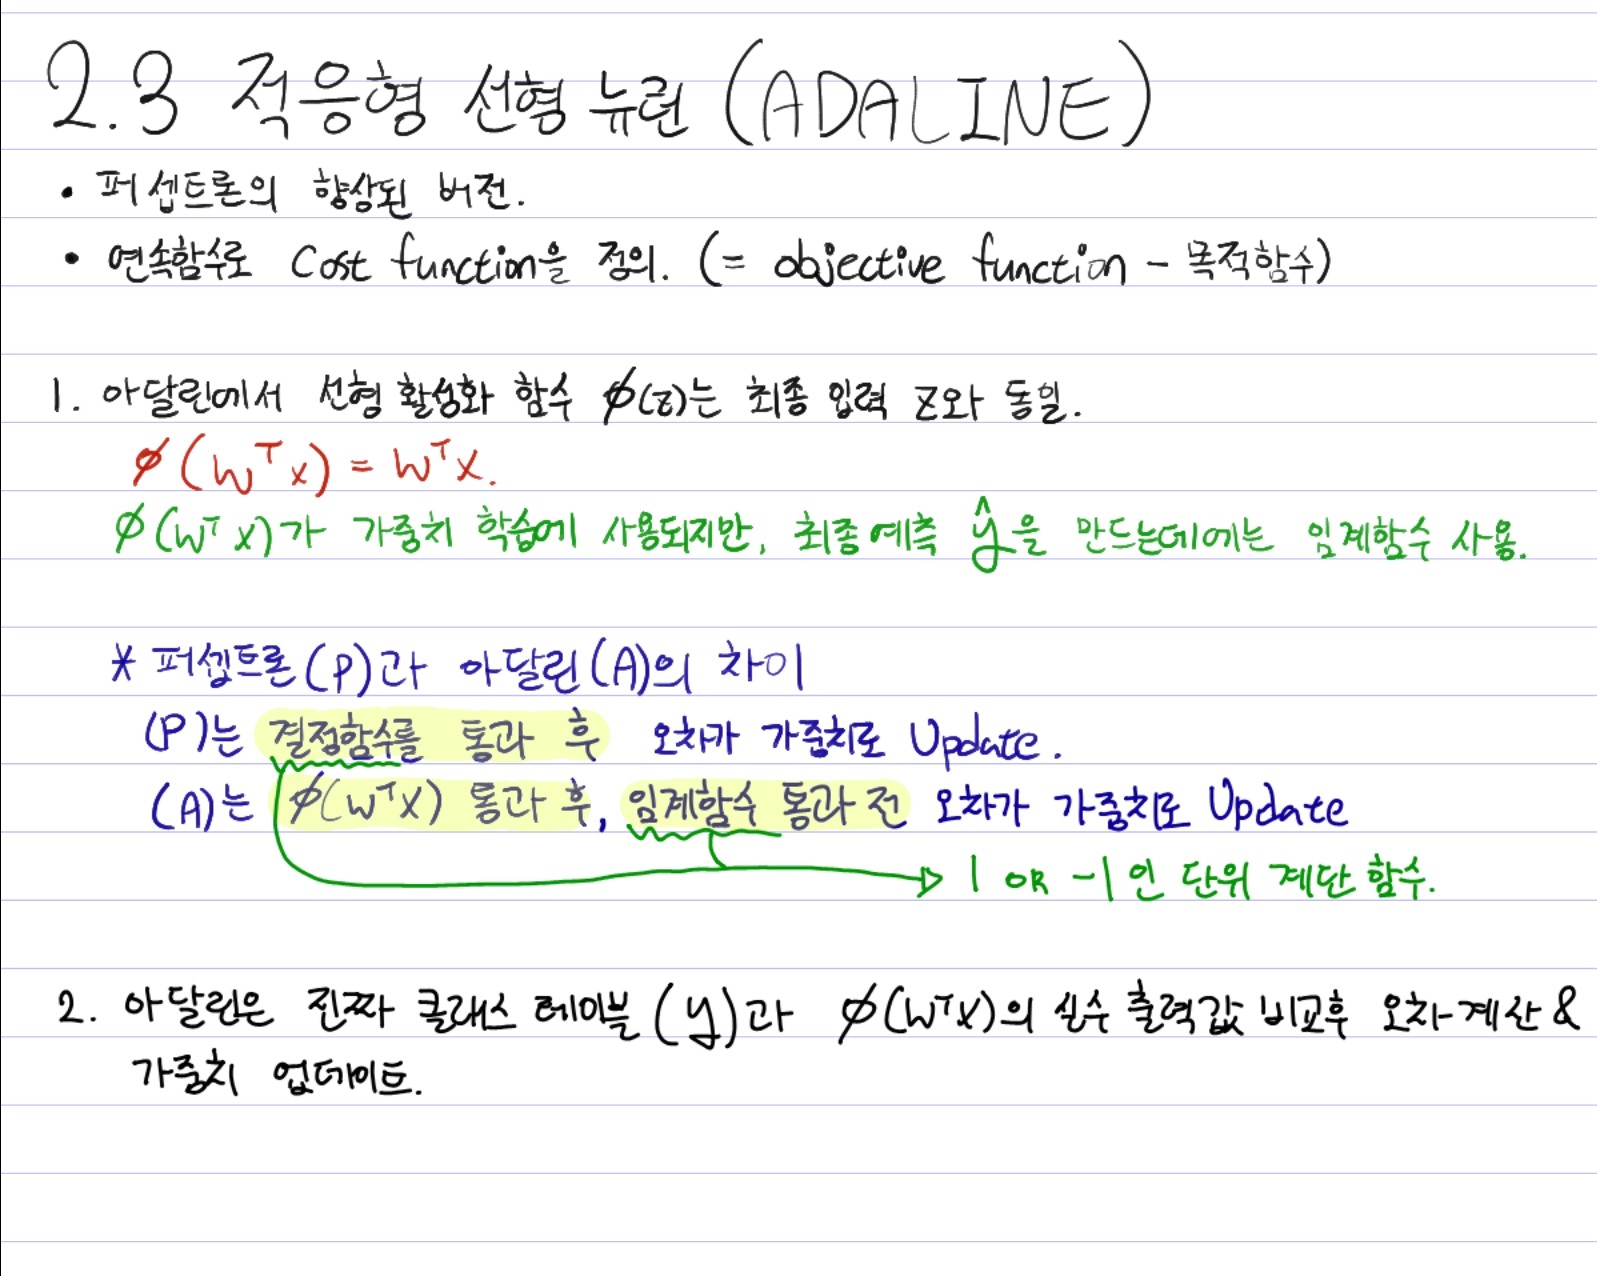 2.3 적응형 선형 뉴런 (ADALINE)
• 퍼셉트론의 향상된 버전.
• 연속함수로 Cost function을 정의. (= objective function - 목적함수)
1. 아달린에서 선형 활성화 함수 ∅(z)는 최종 입력 z와 동일.
∅(Wᵀx) = Wᵀx.
∅(Wᵀx)가 가중치 학습에 사용되지만, 최종 예측 ŷ을 만드는데에는 임계함수 사용.
* 퍼셉트론(P)과 아달린(A)의 차이
(P)는 결정함수를 통과 후 오차가 가중치로 Update.
(A)는 ∅(WᵀX) 통과 후, 임계함수 통과 전 오차가 가중치로 Update
1 OR -1인 단위 계단 함수.
2. 아달린은 진짜 클래스 레이블(y)과 ∅(WᵀX)의 실수 출력값 비교후 오차계산 &
가중치 업데이트.